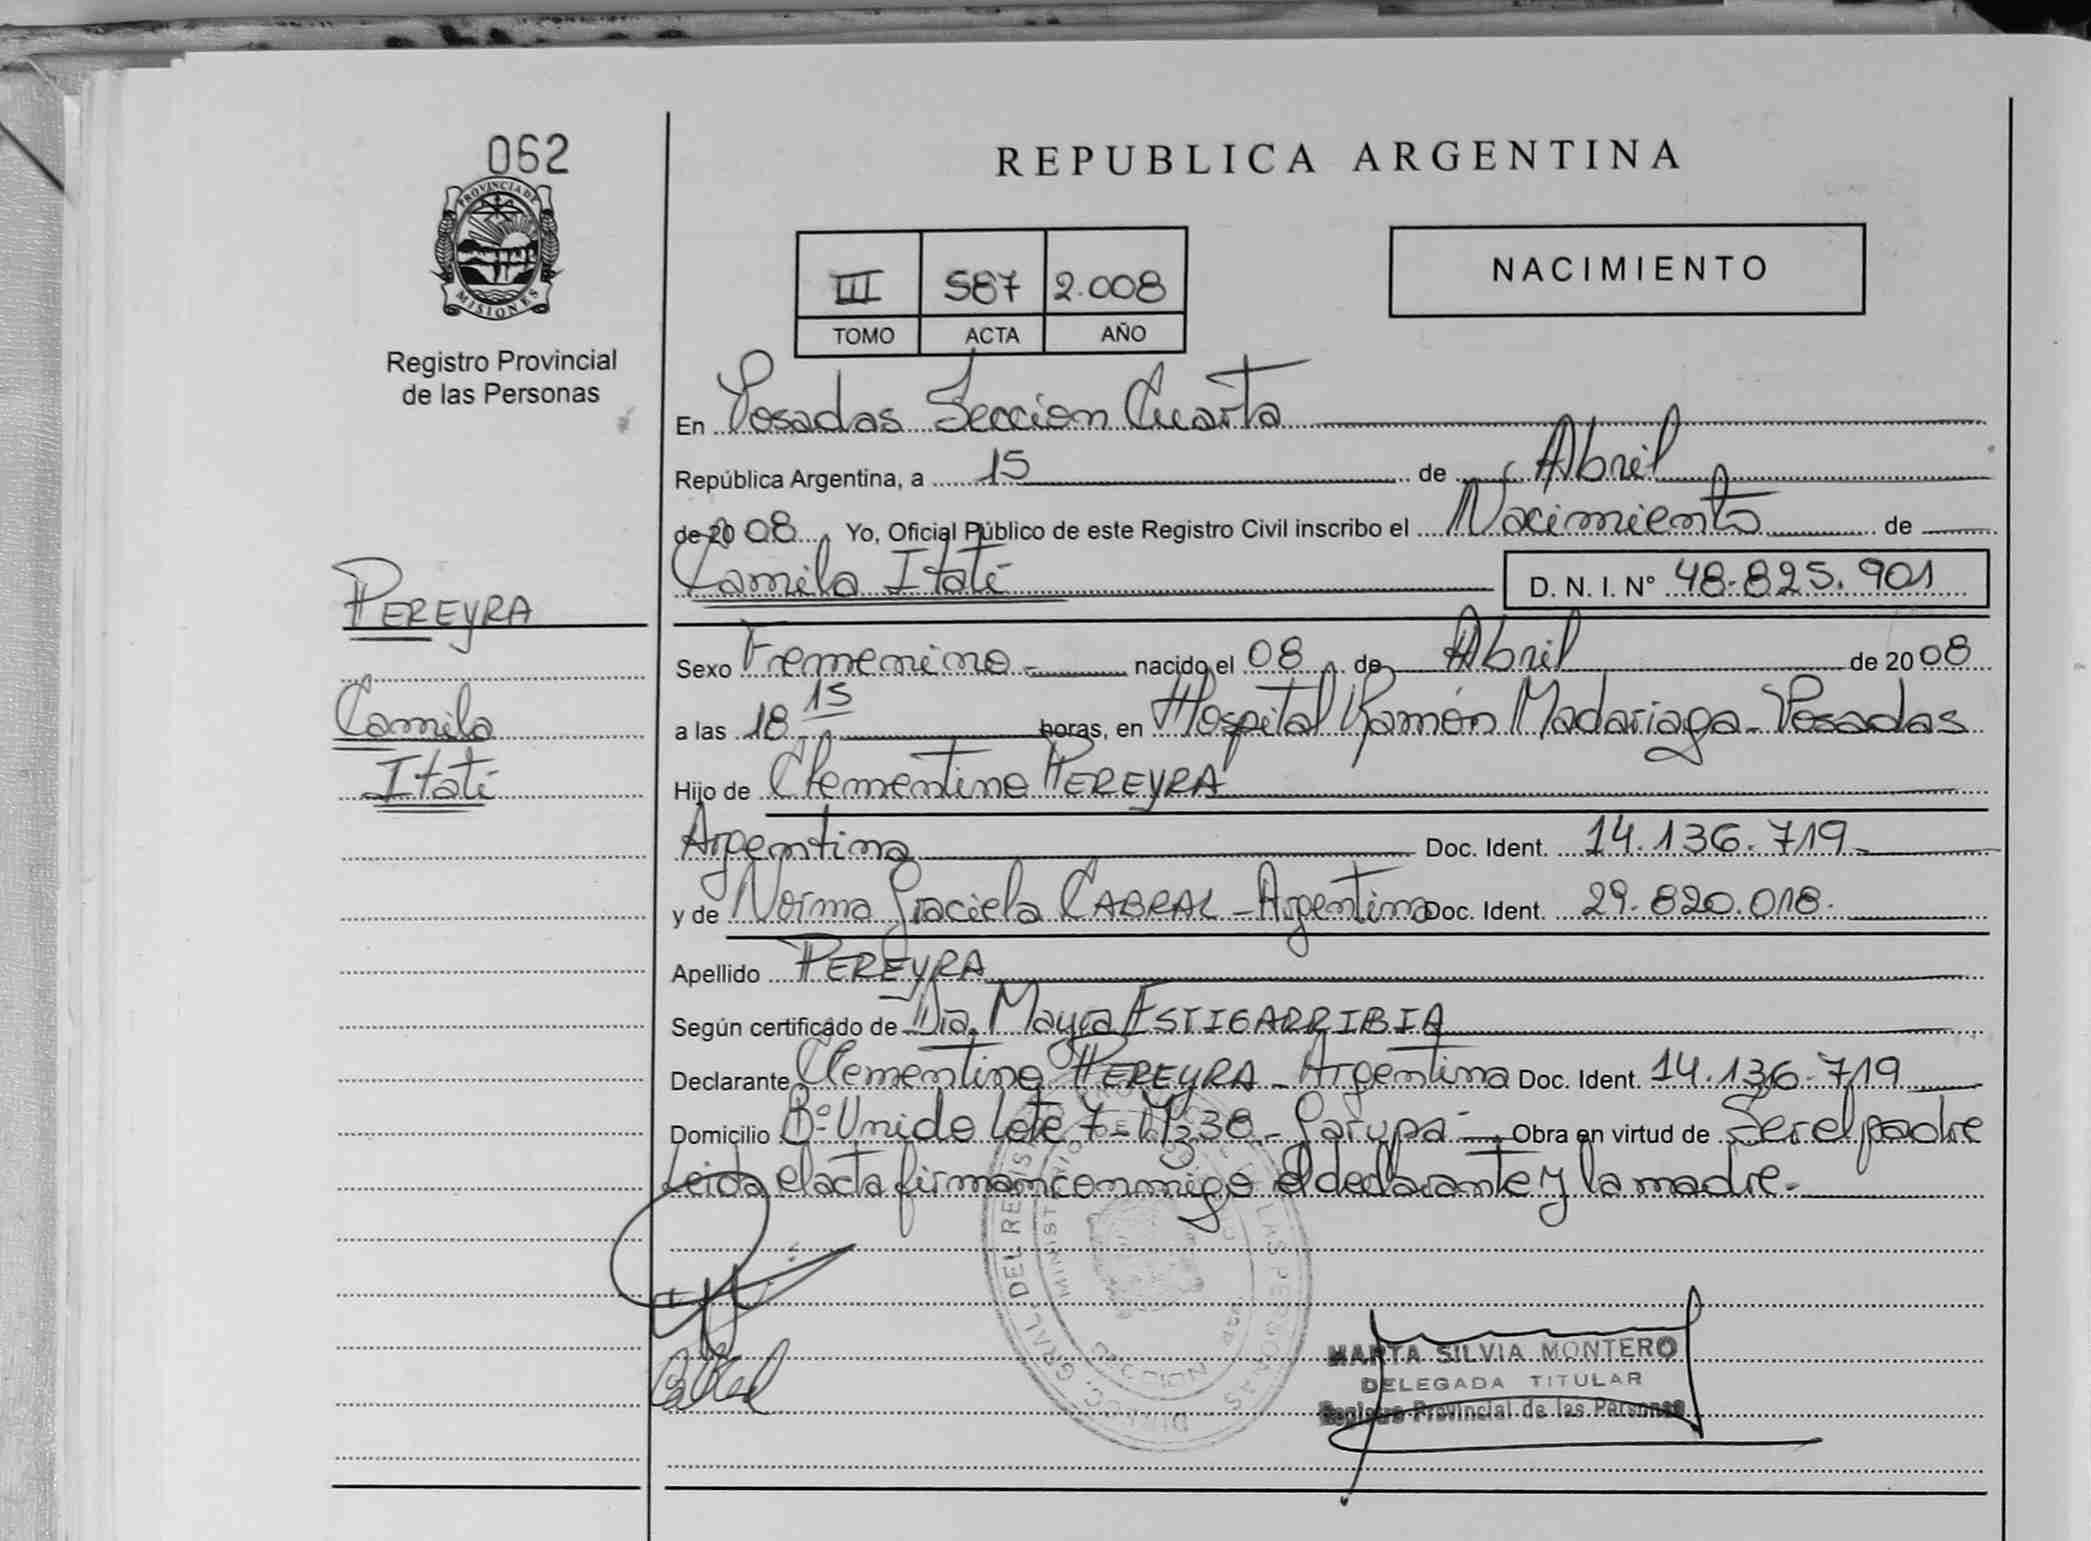 062
PROVINCIA DE
MISIONES
Registro Provincial
de las Personas
REPUBLICA ARGENTINA
III 587 2.008
TOMO ACTA AÑO
NACIMIENTO
En Posadas Seccion Cuarta
República Argentina, a 15 de Abril
de 20 08 Yo, Oficial Público de este Registro Civil inscribo el Nacimiento de
Camila Itatí D. N. I. N° 48.825.901
PEREYRA
Camila
Itatí
Sexo Femenino.- nacido el 08 de Abril de 20 08
a las 18 15 horas, en Hospital Ramón Madariaga - Posadas
Hijo de Clementino PEREYRA
Argentino Doc. Ident. 14.136.719.
y de Norma Graciela CABRAL - Argentina Doc. Ident. 29.820.018.
Apellido PEREYRA
Según certificado de Dra. Mayra ESTIGARRIBIA
Declarante Clementino PEREYRA - Argentino Doc. Ident. 14.136.719
Domicilio Bº Unido Lote 7 - Mz 38 - Garupa - Obra en virtud de Ser el padre
Leida el acta firman conmigo el declarante y la madre.-
DIRECC. GRAL. DEL REGIS LAS PERSONAS
MINISTERIO DE
MARTA SILVIA MONTERO
DELEGADA TITULAR
Registro Provincial de las Personas